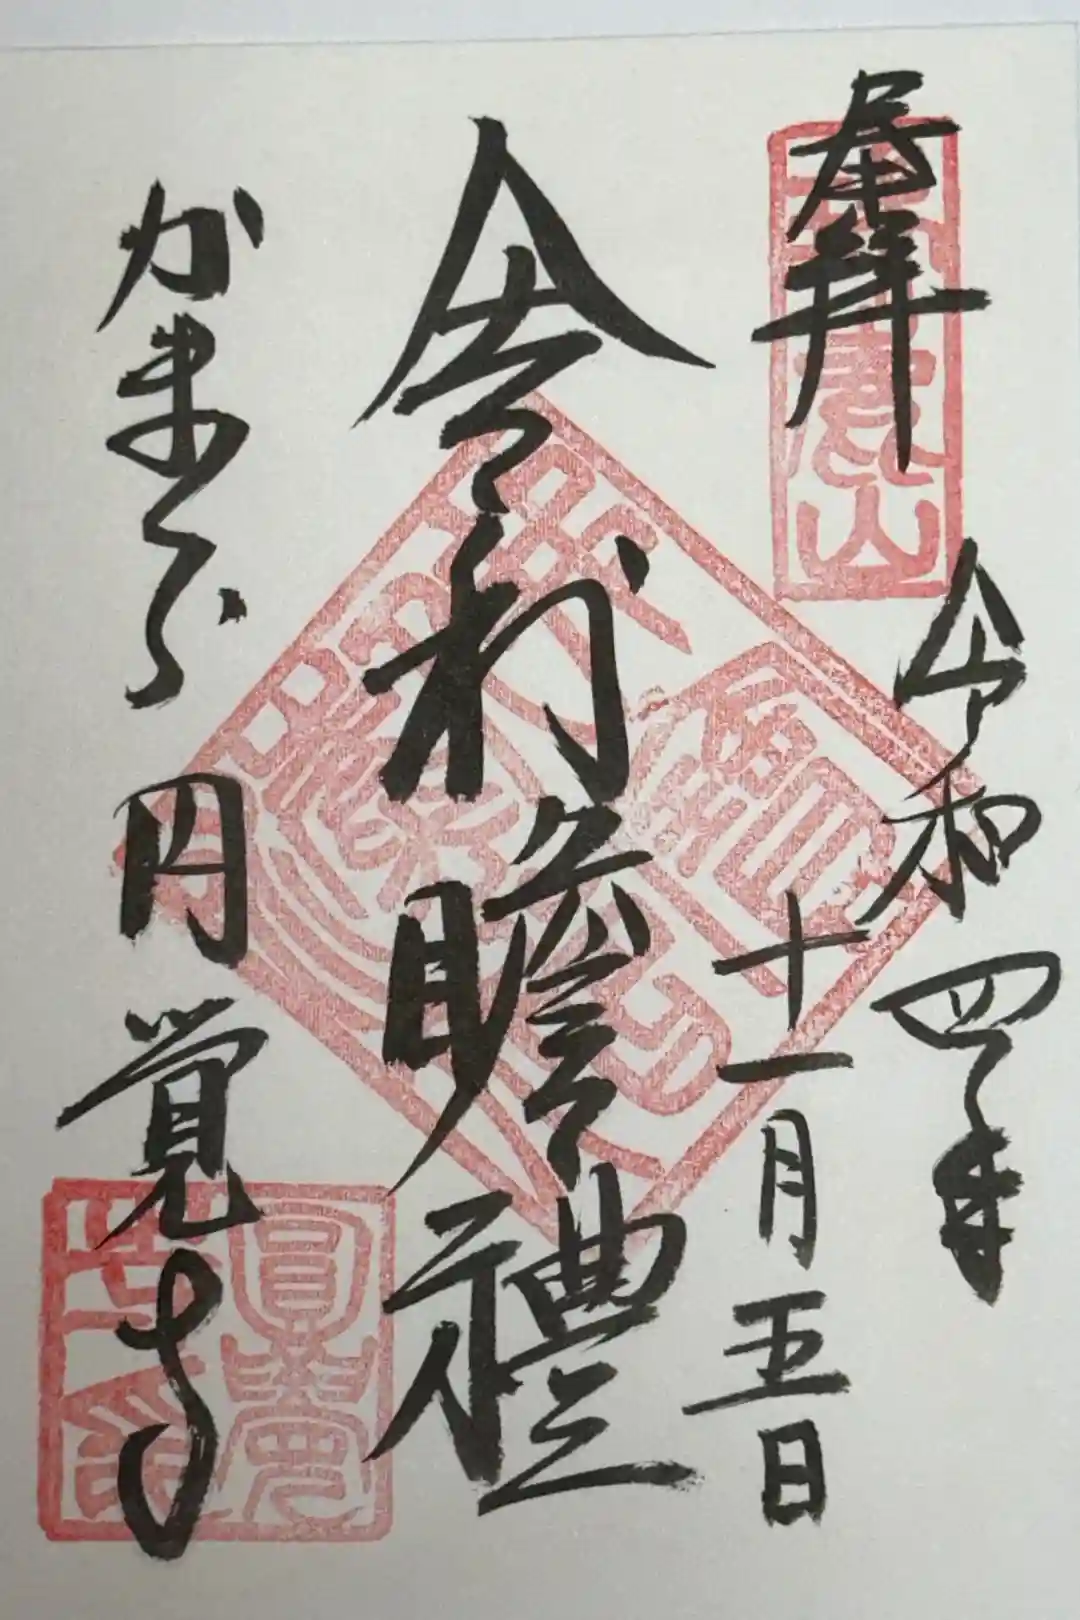 奉拝
令和四年
十一月五日
舎利瞻禮
かまくら 円覚寺